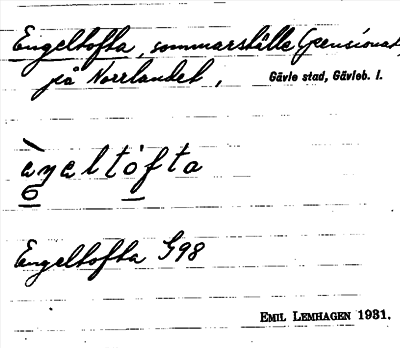 Engeltofta, sommarställe (pensionat)
på Norrlandet, Gävle stad, Gävleb. l.
Engeltofta G98
EMIL LEMHAGEN 1931.